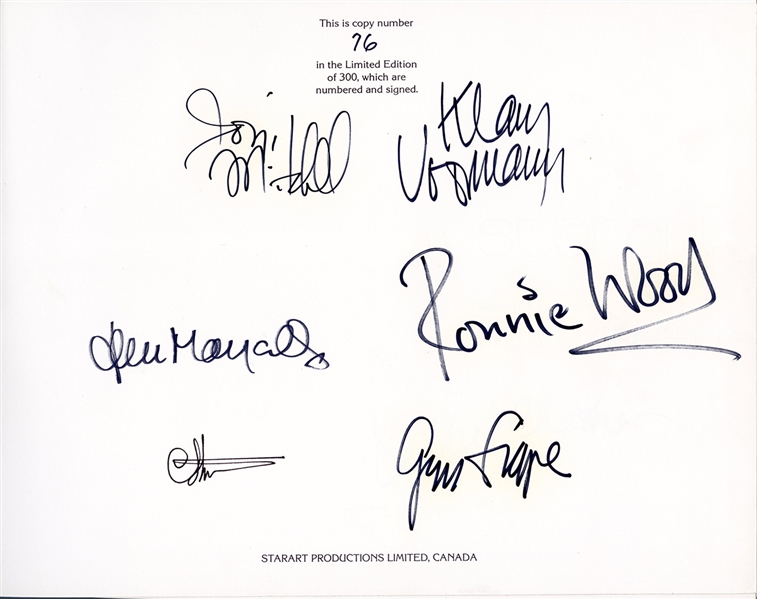 This is copy number
76
in the Limited Edition
of 300, which are
numbered and signed.
Joni
Mitchell
Klaus
Voormann
Ronnie Wood
STARART PRODUCTIONS LIMITED, CANADA